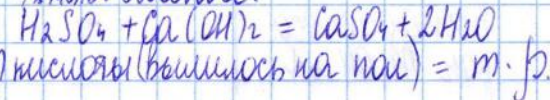 H2SO4 + Ca(OH)2 = CaSO4 + 2H2O
кислоты (вылилось на пол) = m · р.